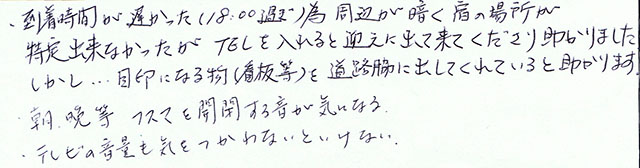 ・到着時間が遅かった(18:00過ぎ)為 周辺が暗く宿の場所が
特定出来なかったが TELを入れると迎えに出て来てくださり助かりました
しかし…目印になる物(看板等)を道路脇に出してくれていると助かります
・朝.晩等 フスマを開閉する音が気になる.
・テレビの音量も気をつかわないといけない.